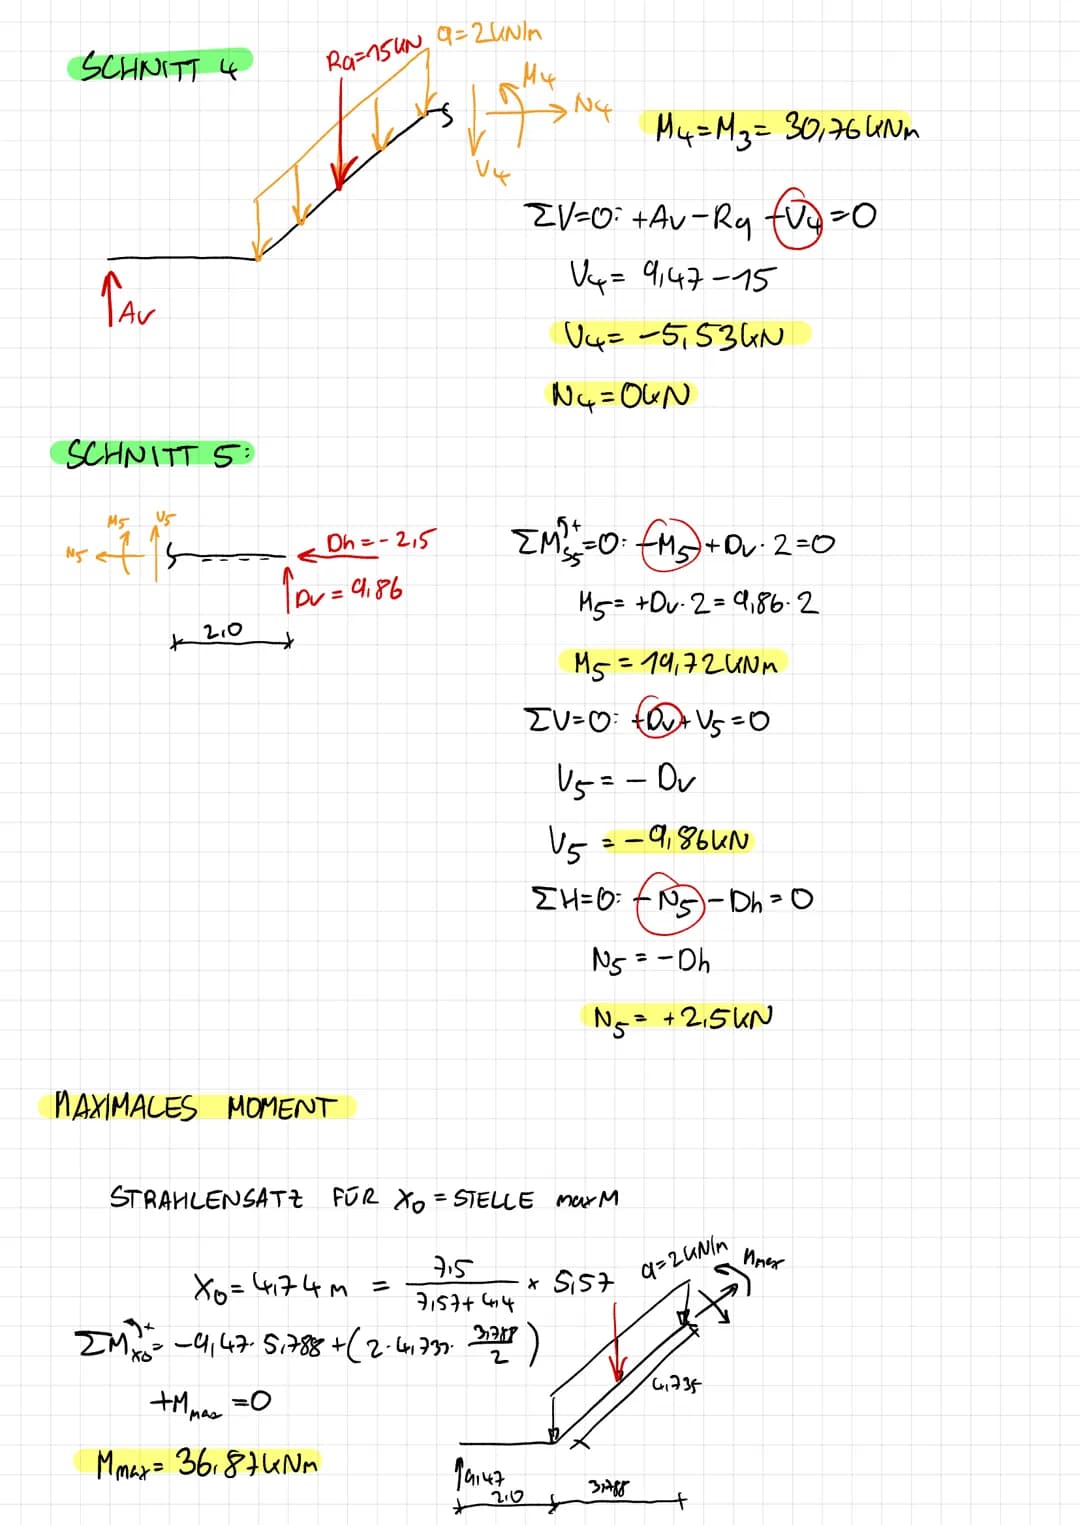 SCHNITT 4
Rq=15kN
q=2kN/m
M4
N4
V4
Av
M4=M3= 30,76 kNm
ΣV=0: +Av-Rq -V4=0
V4= 9,47-15
V4= -5,53kN
N4=0kN
SCHNITT 5:
M5
V5
N5
Dh=-2,5
Dv=9,86
2,0
ΣMS5=0: -M5+Dv·2=0
M5=+Dv·2=9,86·2
M5=19,72kNm
ΣV=0: +Dv+V5=0
V5=-Dv
V5=-9,86kN
ΣH=0: -N5-Dh=0
N5=-Dh
N5=+2,5kN
MAXIMALES MOMENT
STRAHLENSATZ FÜR X0=STELLE maxM
X0=4,74m = 7,5 / 7,57+4,4 × 5,57
ΣMX0=-9,47·5,788+(2·4,735·3,788/2)
+Mmax=0
Mmax=36,87kNm
q=2kN/m
Mmax
4,735
9,47
2,0
3,788